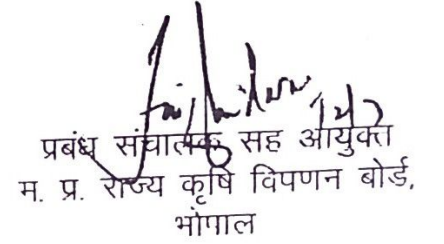 प्रबंध संचालक सह आयुक्त
म. प्र. राज्य कृषि विपणन बोर्ड,
भोपाल